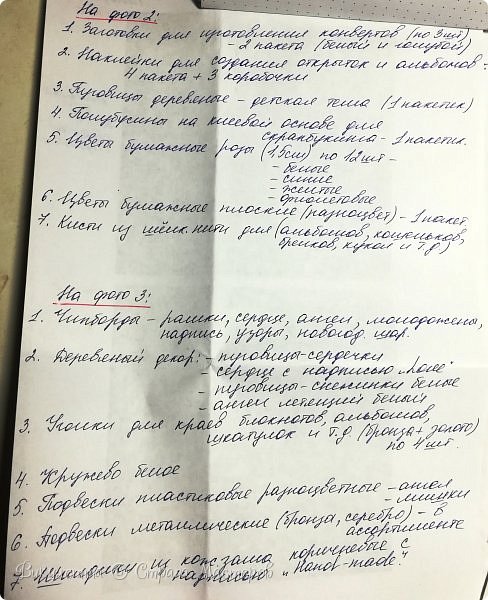 На фото 2:
1. Заготовки для изготовления конвертов (по 3 шт)
- 2 пакета (белый и голубой)
2. Наклейки для создания открыток и альбомов -
4 пакета + 3 коробочки
3. Пуговицы деревеные - детская тема (1 пакетик)
4. Полубусины на клеевой основе для
скрапбукинга - 1 пакетик.
5. Цветы бумажные розы (1,5см) по 12 шт -
- белые
- синие
- желтые
- фиолетовые
6. Цветы бумажные плоские (разноцвет) - 1 пакет
7. Кисти из шёлк. нити для (альбомов, кошельков,
брелков, кукол и т.д.)
На фото 3:
1. Чипборды - рамки, сердце, ангел, молодожены,
надпись, узоры, новогод. шар.
2. Деревеный декор: - пуговицы-сердечки
- сердце с надписью "Love"
- пуговицы-снежинки белые
- ангел летещий белый
3. Уголки для краев блокнотов, альбомов,
шкатулок и т.д. (бронза + золото)
по 4 шт.
4. Кружево белое
5. Подвески пластиковые разноцветные - ангел
- мишки
6. Подвески металлические (бронза, серебро) - в
ассортименте
7. Шильдики из кожзама коричневые с
надписью "Hand-made".